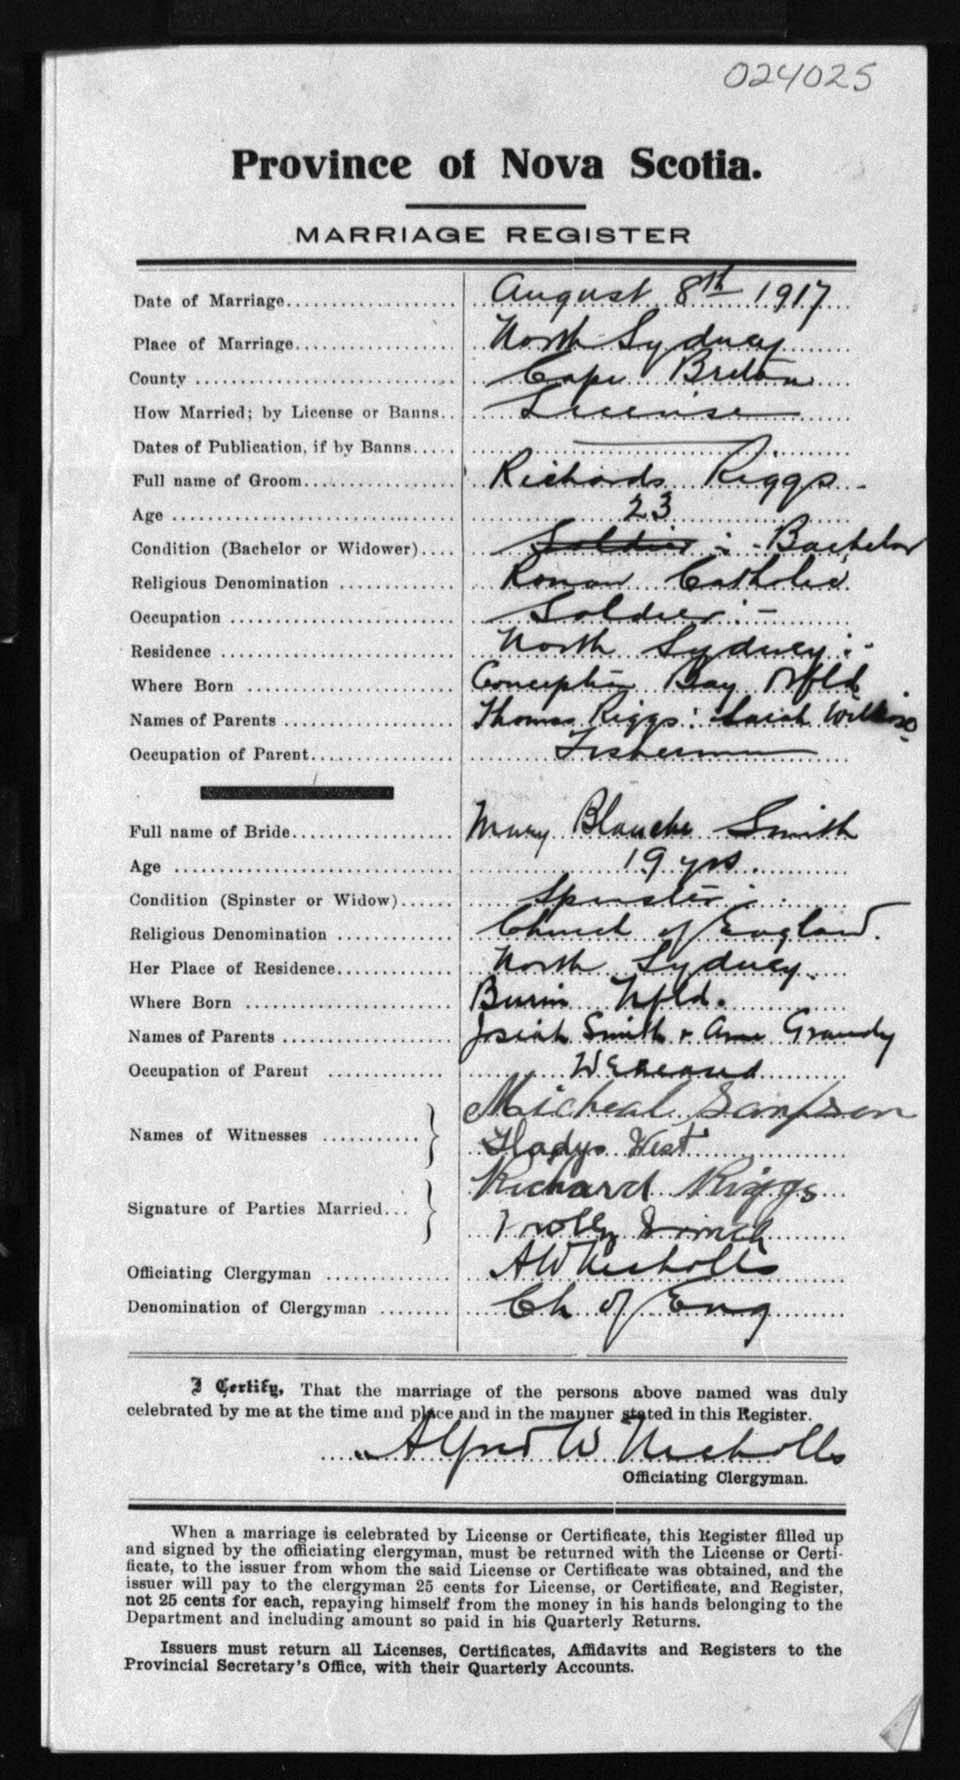 024025
Province of Nova Scotia.
MARRIAGE REGISTER
Date of Marriage.................... August 8th 1917
Place of Marriage.................. North Sydney
County ............................. Cape Breton
How Married; by License or Banns.. License
Dates of Publication, if by Banns.....
Full name of Groom.................. Richards Riggs
Age ................................ 23
Condition (Bachelor or Widower).... Soldier : - Bachelor
Religious Denomination ............. Roman Catholic
Occupation ......................... Soldier : -
Residence .......................... North Sydney : -
Where Born ........................ Conception Bay Nfld
Names of Parents ................... Thomas Riggs : Sarah
Occupation of Parent................ Fisherman
Full name of Bride.................. Mary Blanche Smith
Age ................................ 19 yrs.
Condition (Spinster or Widow)...... Spinster :
Religious Denomination ............. Church of England.
Her Place of Residence............. North Sydney
Where Born ........................ Burin Nfld.
Names of Parents ................... Josiah Smith + Ann Grandy
Occupation of Parent ..............
Micheal Sampson
Names of Witnesses ...........
Gladys West
Richard Riggs
Signature of Parties Married...
Smith
Officiating Clergyman .............. A W Nicholls
Denomination of Clergyman ........ Ch of Eng
I Certify, That the marriage of the persons above named was duly
celebrated by me at the time and place and in the manner stated in this Register.
Alfred W Nicholls
Officiating Clergyman.
When a marriage is celebrated by License or Certificate, this Register filled up
and signed by the officiating clergyman, must be returned with the License or Certi-
ficate, to the issuer from whom the said License or Certificate was obtained, and the
issuer will pay to the clergyman 25 cents for License, or Certificate, and Register,
not 25 cents for each, repaying himself from the money in his hands belonging to the
Department and including amount so paid in his Quarterly Returns.
Issuers must return all Licenses, Certificates, Affidavits and Registers to the
Provincial Secretary's Office, with their Quarterly Accounts.